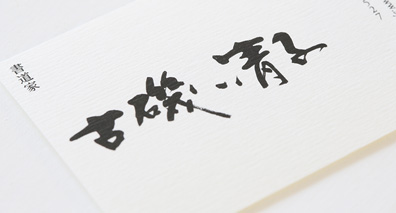 書道家
古磯 清子